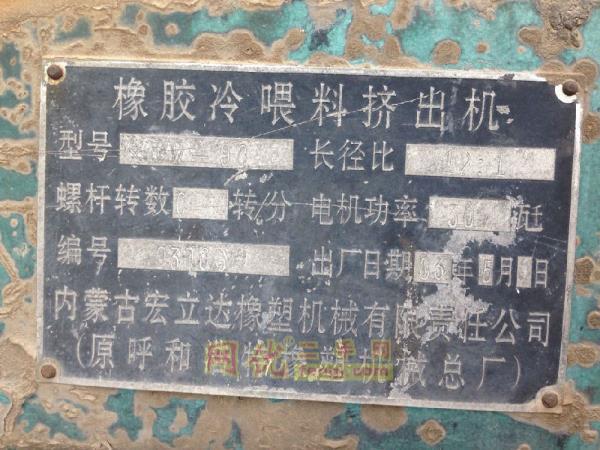 橡胶冷喂料挤出机
型号 长径比 12:1
螺杆转数 转/分 电机功率 瓩
编号 出厂日期 年 5月 日
内蒙古宏立达橡塑机械有限责任公司
(原呼和 橡塑机械总厂)